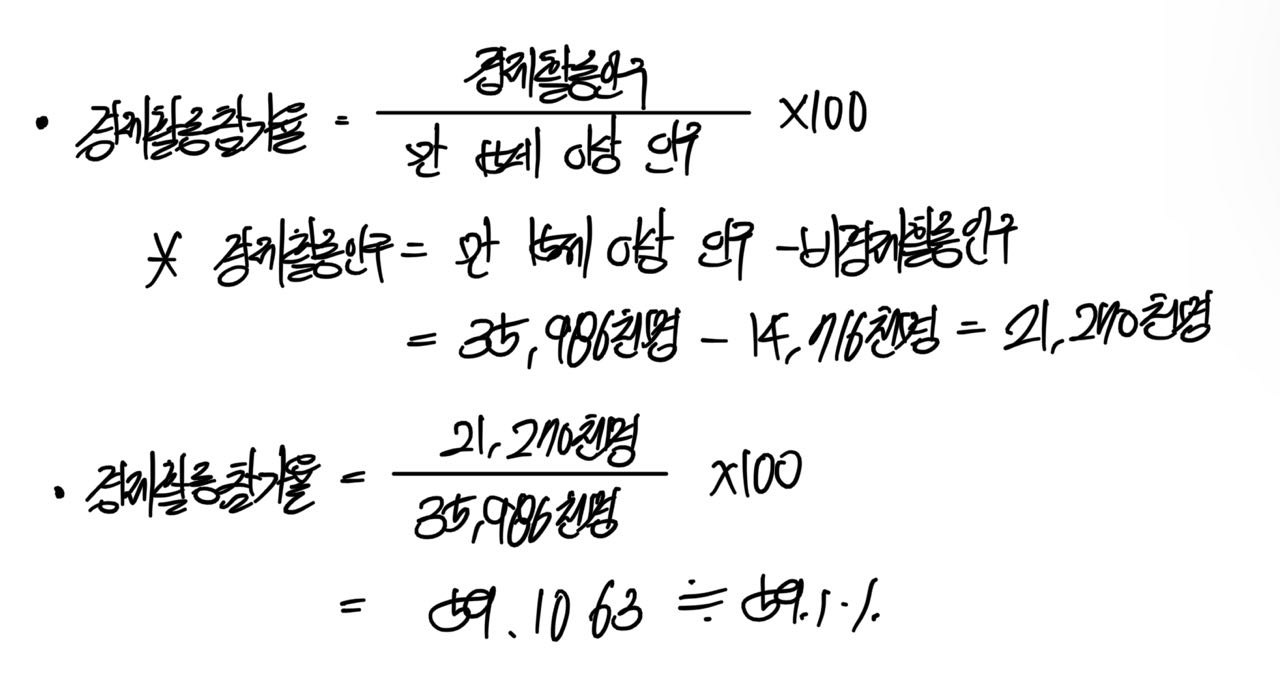 • 경제활동참가율 = 경제활동인구 / 만 15세 이상 인구 ×100
* 경제활동인구 = 만 15세 이상 인구 - 비경제활동인구
= 35,986천명 - 14,716천명 = 21,270천명
• 경제활동참가율 = 21,270천명 / 35,986천명 ×100
= 59.1063 ≒ 59.1%